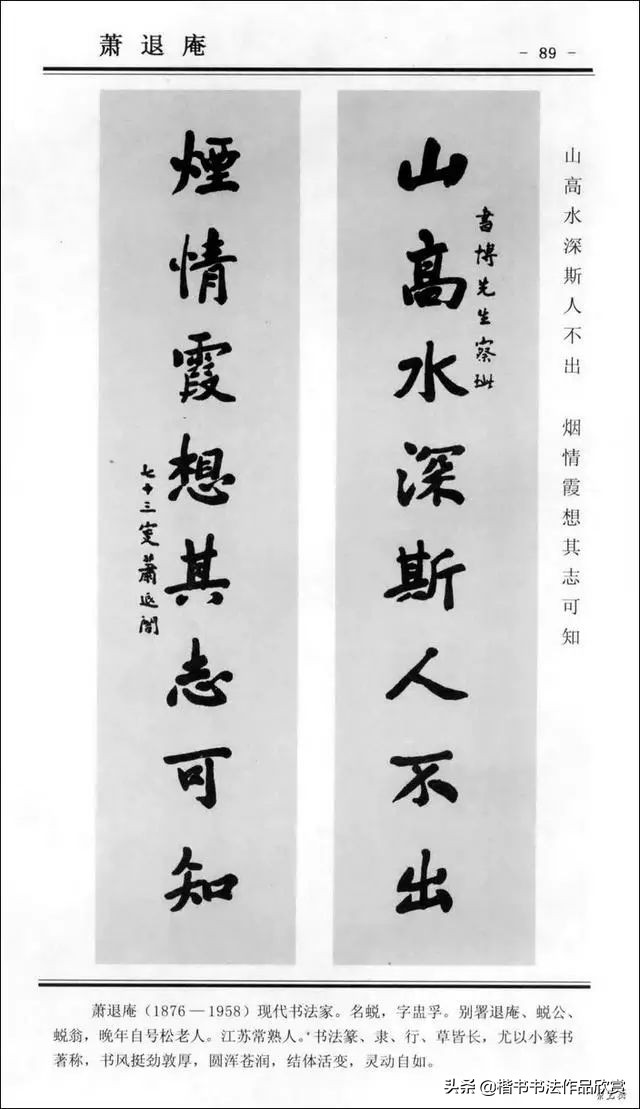 萧退庵
- 89 -
山高水深斯人不出 烟情霞想其志可知
山高水深斯人不出
書博先生察
煙情霞想其志可知
七十三叟蕭退闇
萧退庵（1876—1958）现代书法家。名蜕，字盅孚。别署退庵、蜕公、
蜕翁，晚年自号松老人。江苏常熟人。书法篆、隶、行、草皆长，尤以小篆书
著称，书风挺劲敦厚，圆浑苍润，结体活变，灵动自如。
头条@楷书书法作品欣赏